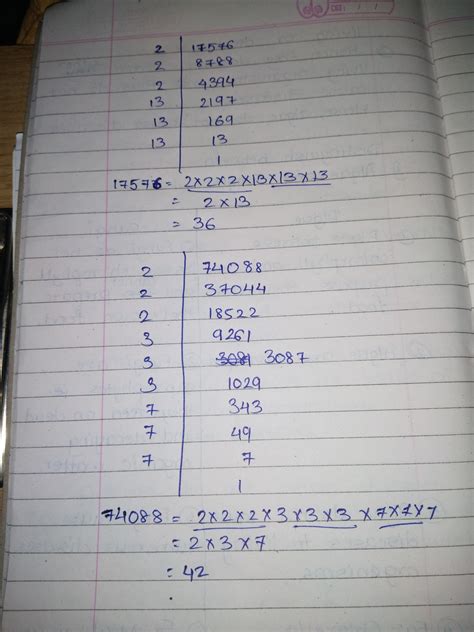 2 | 17576
2 | 8788
2 | 4394
13 | 2197
13 | 169
13 | 13
| 1
17576 = 2×2×2×13×13×13
= 2×13
= 36
2 | 74088
2 | 37044
2 | 18522
3 | 9261
3 | 3087
3 | 1029
7 | 343
7 | 49
7 | 7
| 1
74088 = 2×2×2×3×3×3×7×7×7
= 2×3×7
= 42